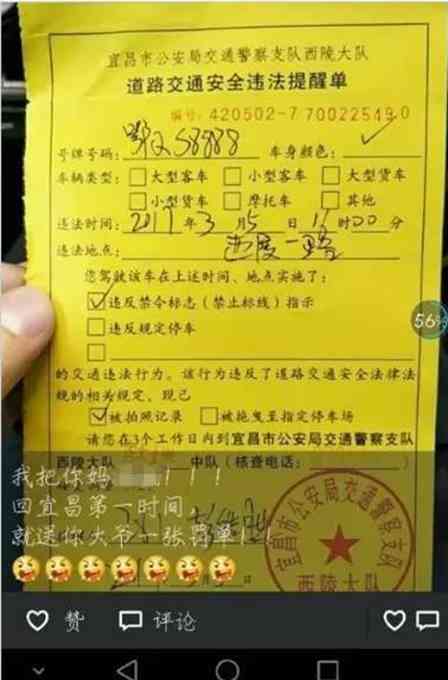 宜昌市公安局交通警察支队西陵大队
道路交通安全违法提醒单
编号: 420502-7 70022549 0
号牌号码: 58888 车身颜色:
车辆类型: 大型客车 小型客车 大型货车
小型货车 摩托车 其他
违法时间: 2017年3月5日16时00分
违法地点: 西陵一路
您驾驶该车在上述时间、地点实施了:
违反禁令标志(禁止标线)指示
违反规定停车
的交通违法行为。该行为违反了道路交通安全法律法
规的相关规定，现已
被拍照记录 被拖曳至指定停车场
请您在3个工作日内到宜昌市公安局交通警察支队
西陵大队 中队(核查电话:
宜昌市公安局交通警察支队
西陵大队
56
我把你妈 ！！！
回宜昌第一时间，
就送你大爷一张罚单！！
赞 评论